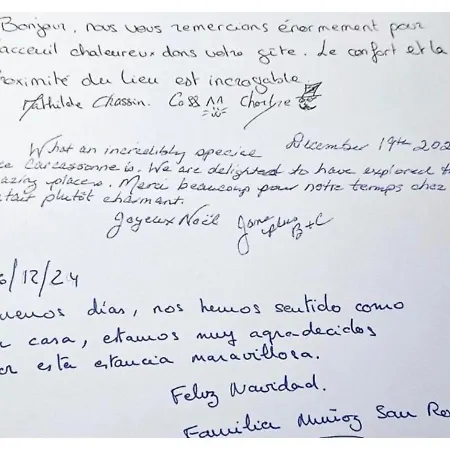 Bonjour, nous vous remercions énormement pour
acceuil chaleureux dans votre gîte. Le confort et la
roximité du lieu est incroyable.
Mathilde Chassin. Charlie
What an incredibly special December 19th 202
ce Carcassonne is. We are delighted to have explored t
azing places. Merci beaucoup pour notre temps chez
etait plutôt charmant.
Joyeux Noël Jane plus B+C
6/12/24
uenos días, nos hemos sentido como
n casa, estamos muy agradecidos
or esta estancia maravillosa.
Feliz Navidad.
Familia Muñoz San Ro